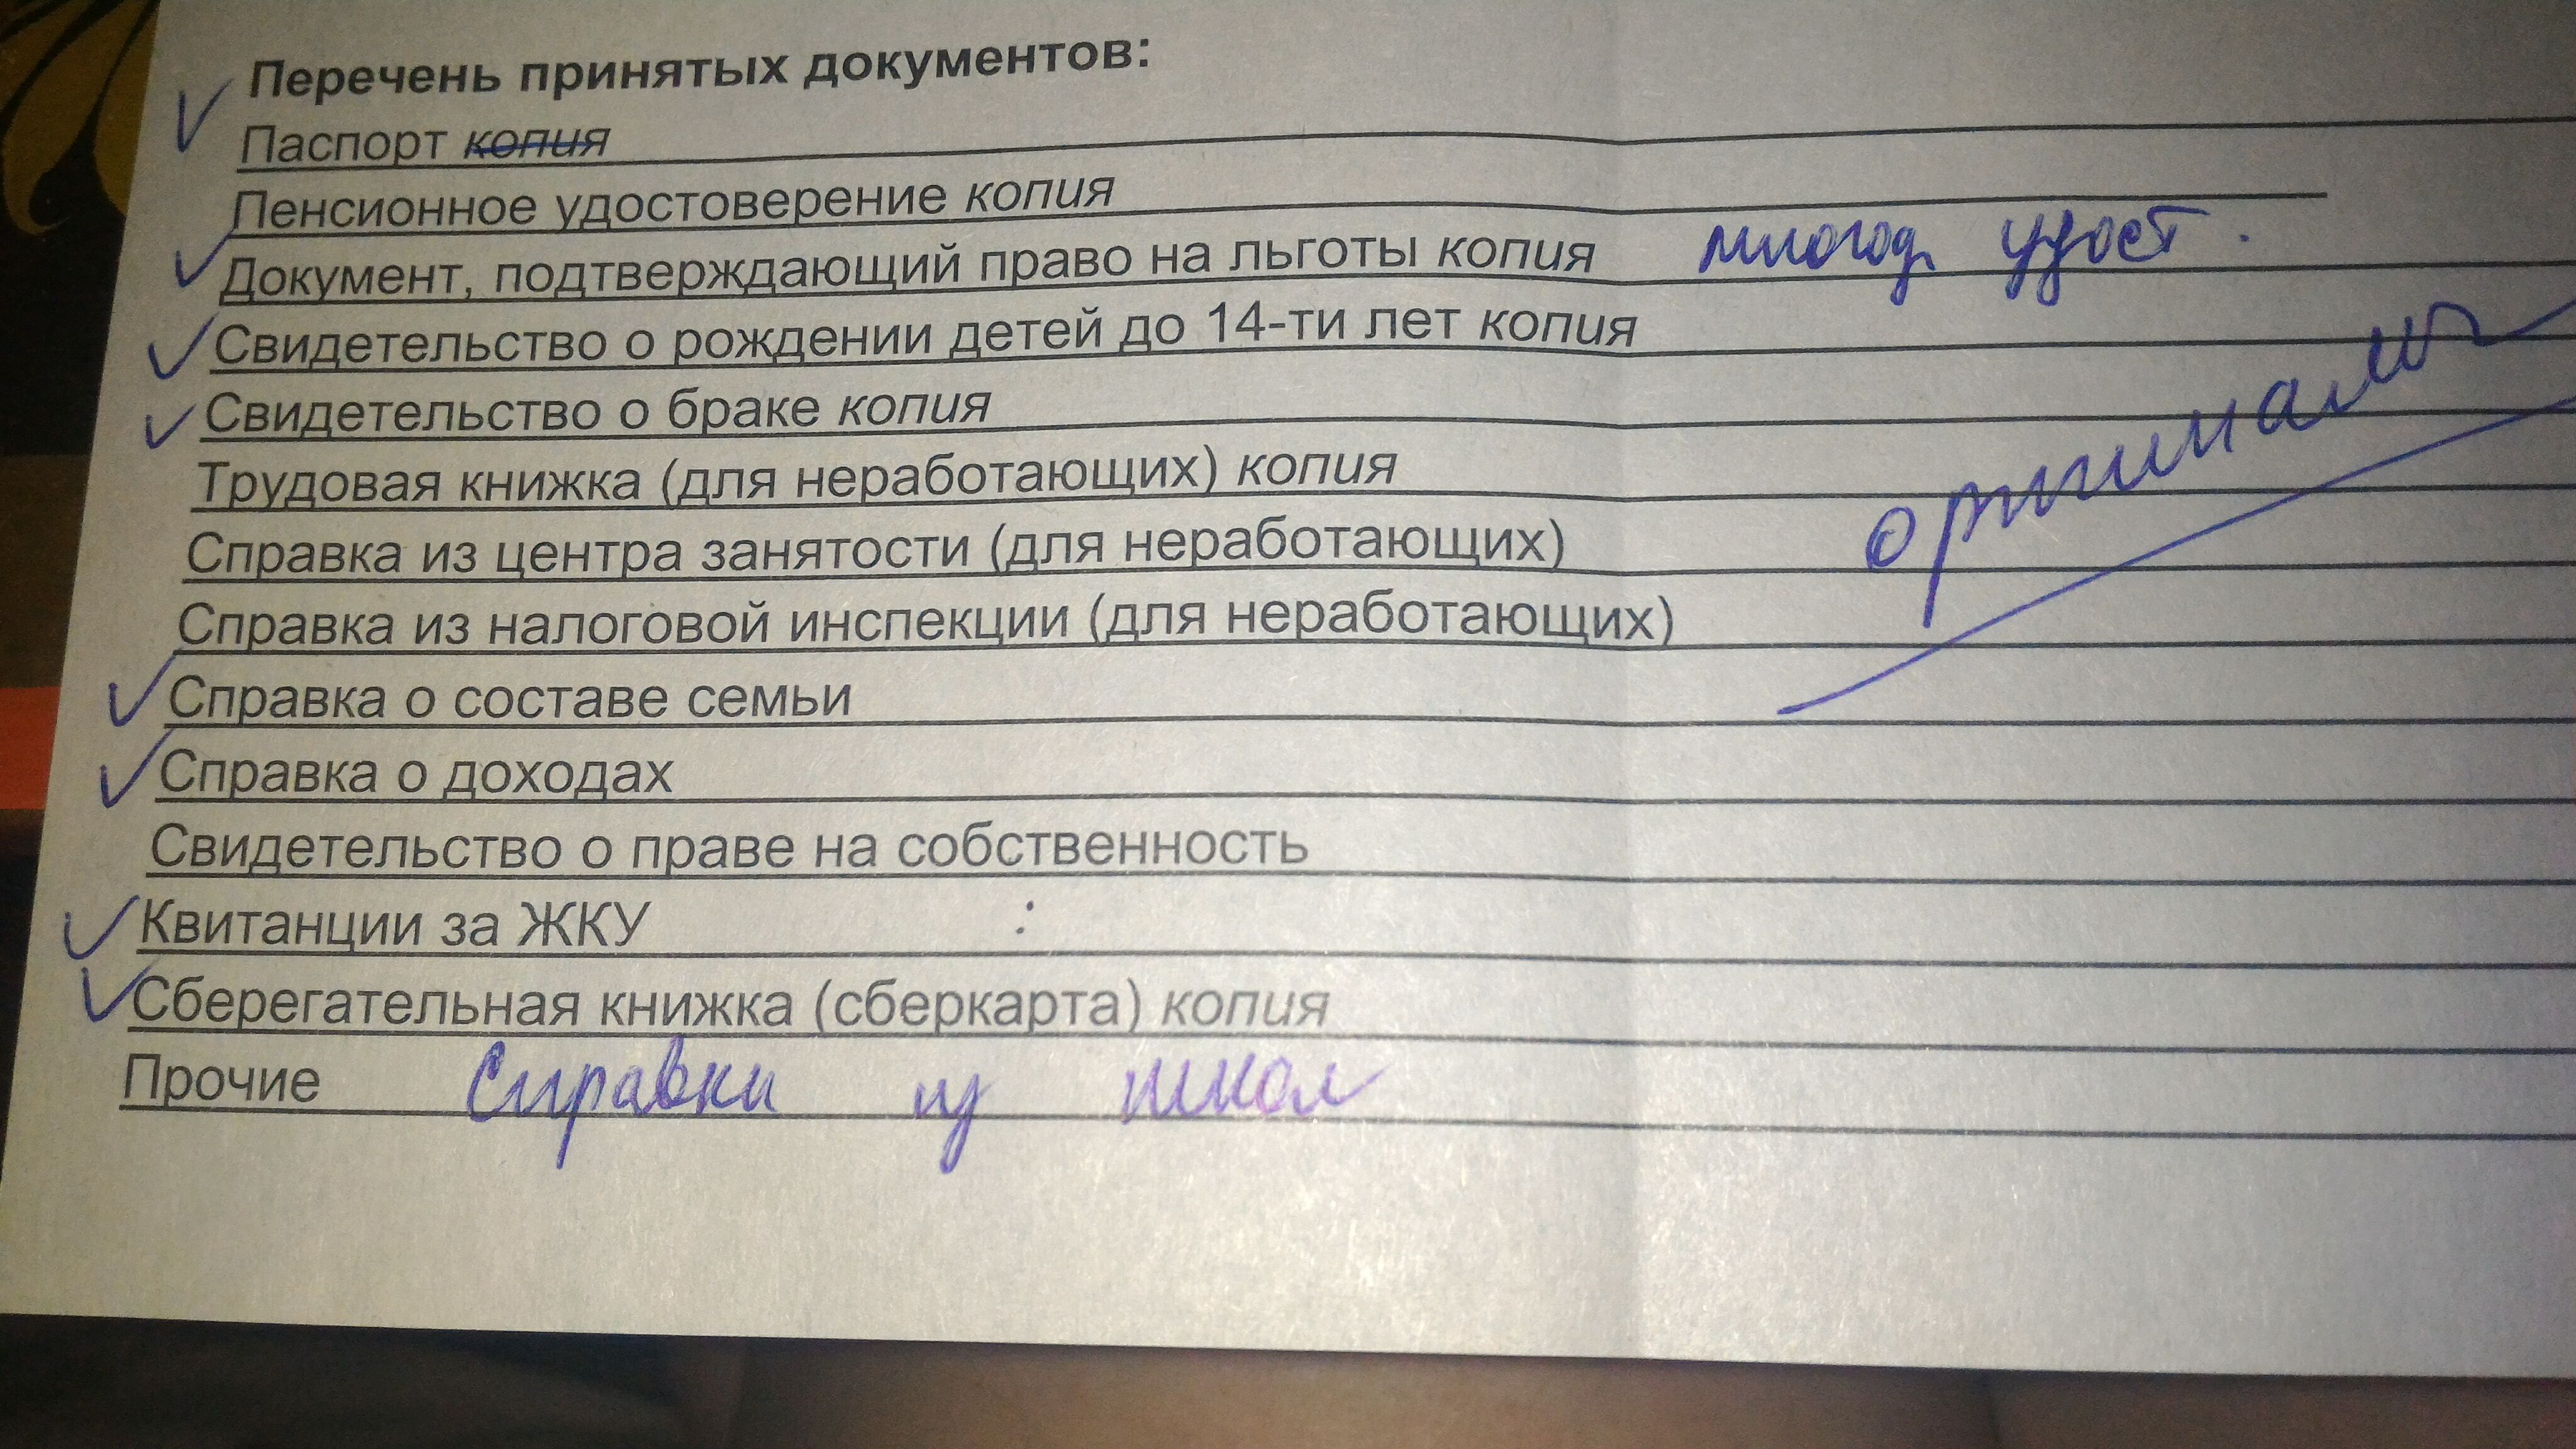 Перечень принятых документов:
Паспорт копия
Пенсионное удостоверение копия
Документ, подтверждающий право на льготы копия многод. удост.
Свидетельство о рождении детей до 14-ти лет копия
Свидетельство о браке копия
оригиналы
Трудовая книжка (для неработающих) копия
Справка из центра занятости (для неработающих)
Справка из налоговой инспекции (для неработающих)
Справка о составе семьи
Справка о доходах
Свидетельство о праве на собственность
Квитанции за ЖКУ
Сберегательная книжка (сберкарта) копия
Прочие Справки из школ